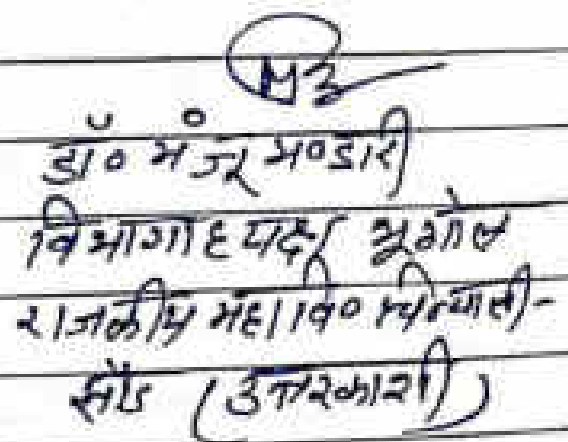 डॉ० मंजू भण्डारी
विभागाध्यक्ष भूगोल
राजकीय महावि० चिन्याली-
सौड (उत्तरकाशी)